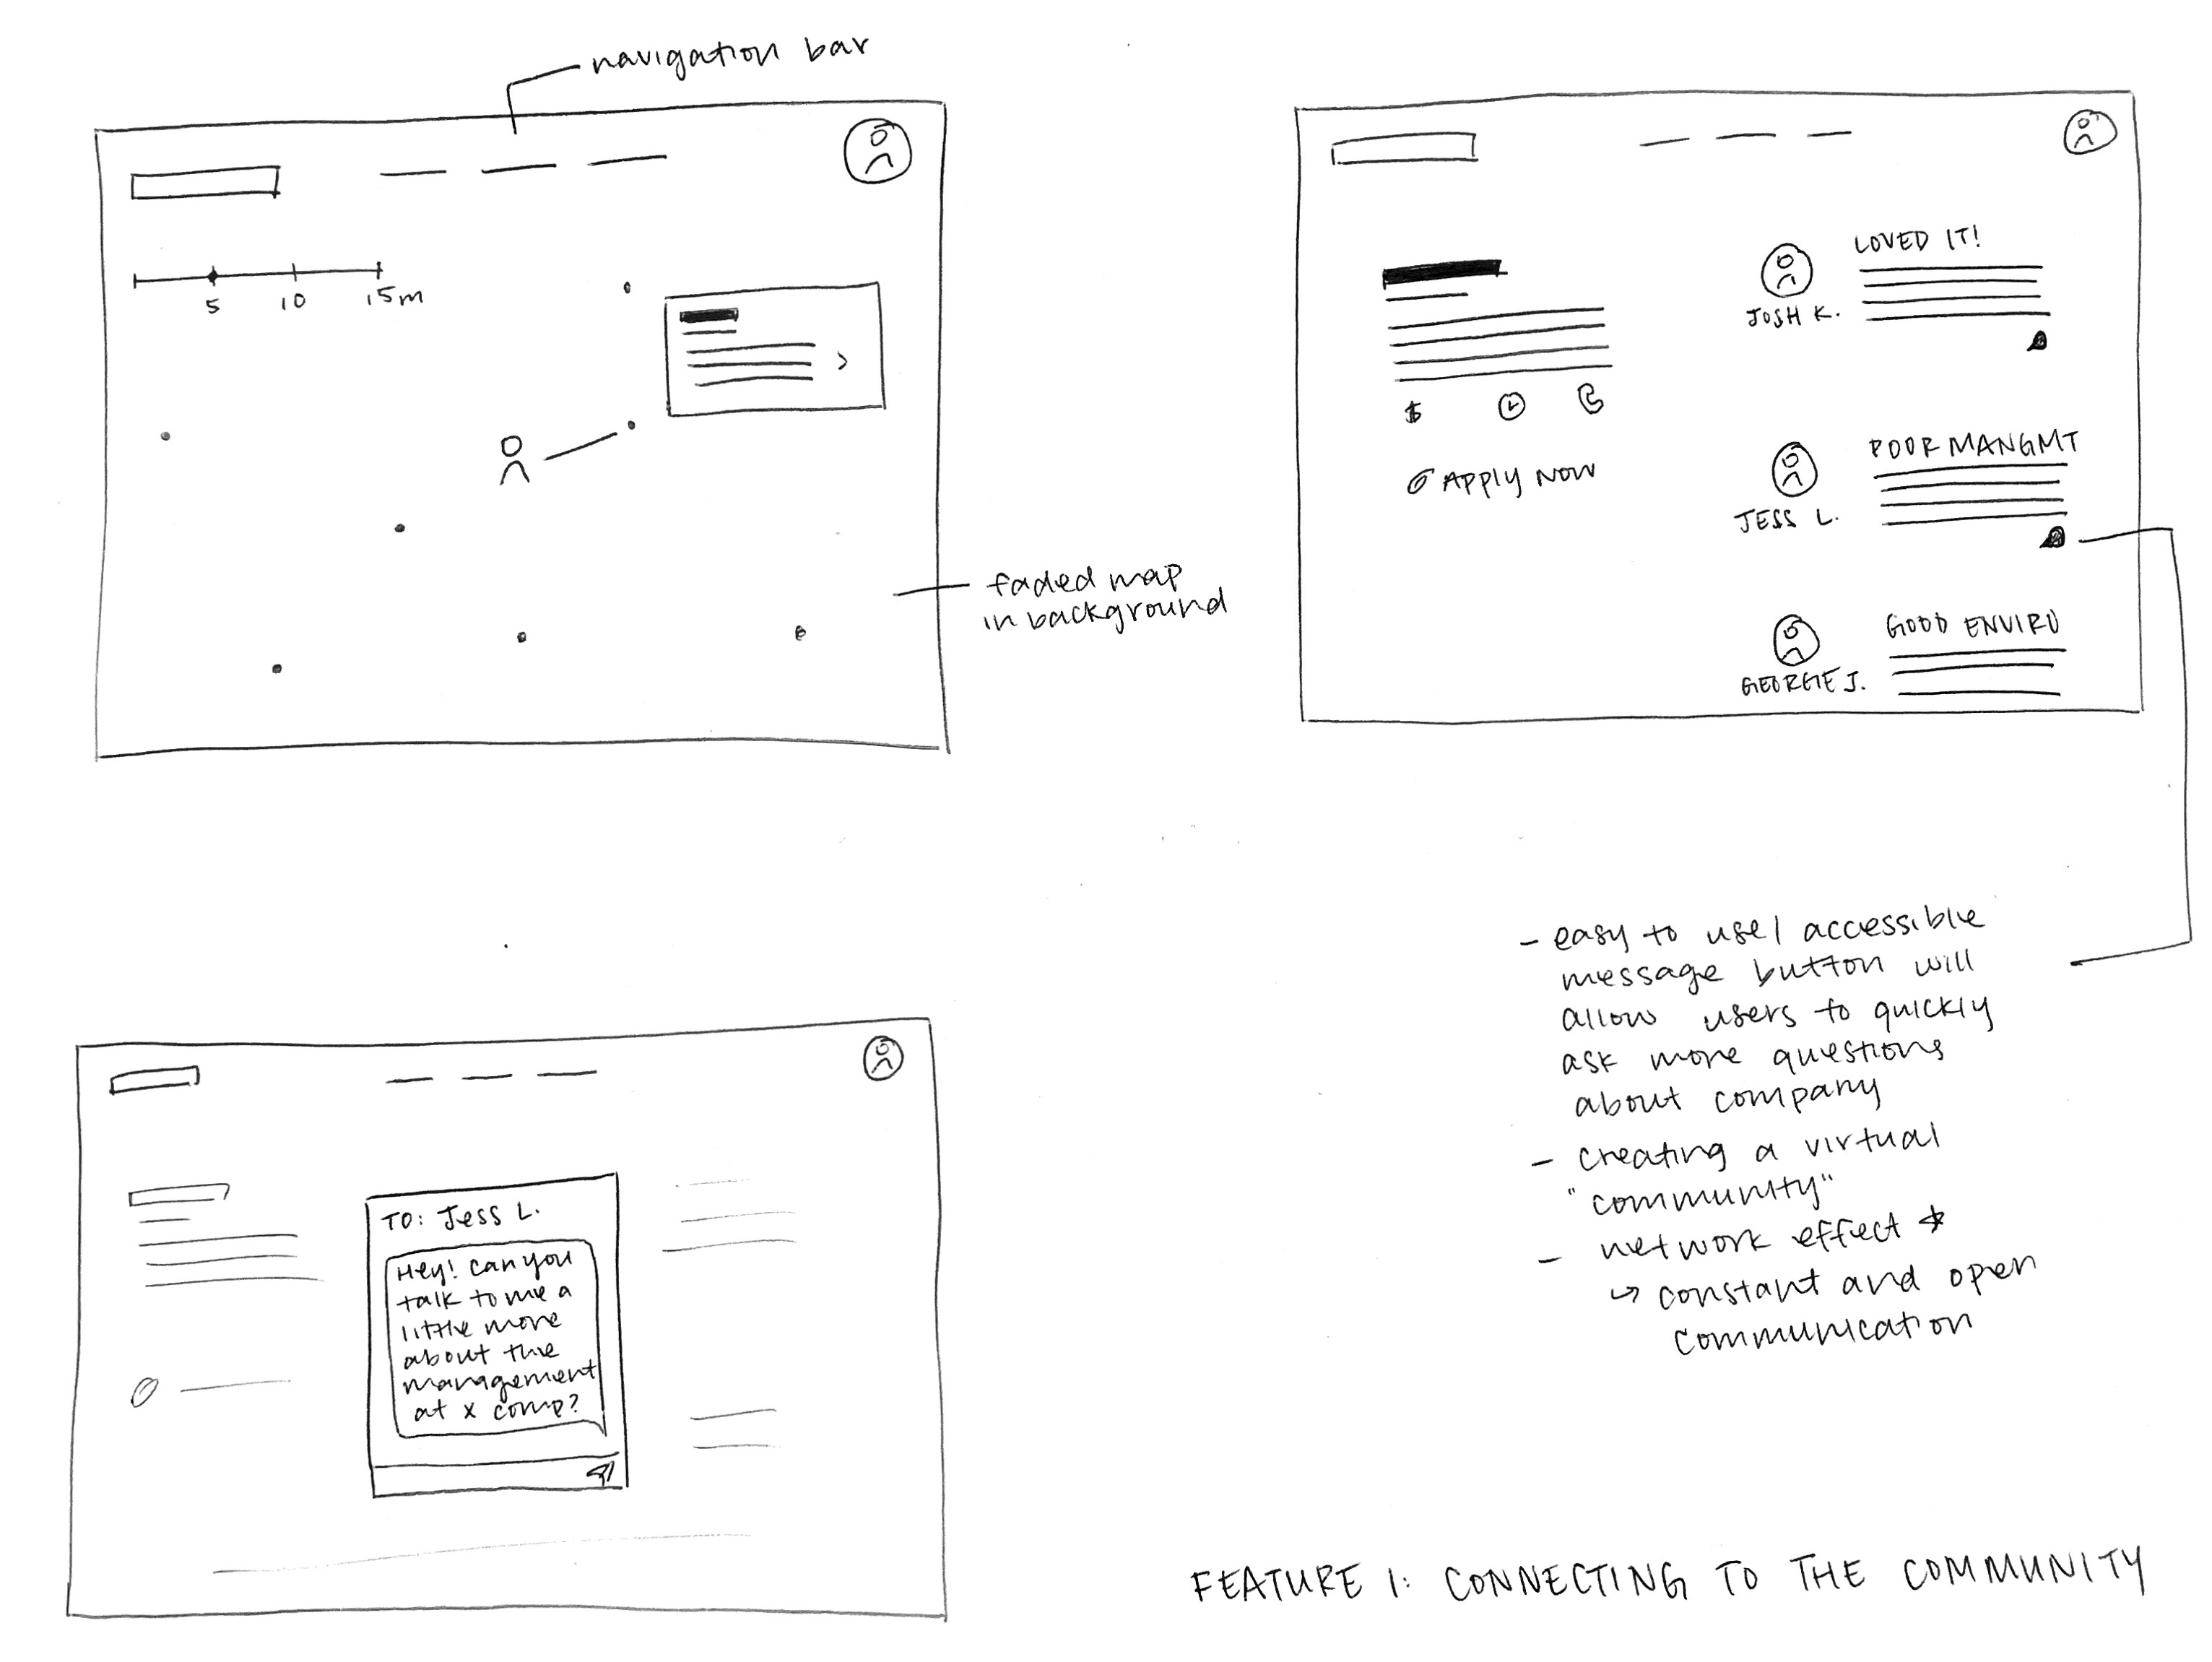 navigation bar
5 10 15m
faded map
in background
LOVED IT!
JOSH K.
$
APPLY NOW
POOR MANGMT
JESS L.
GOOD ENVIRO
GEORGIE J.
- easy to use/accessible
message button will
allow users to quickly
ask more questions
about company
- creating a virtual
"community"
- network effect *
↳ constant and open
communication
TO: Jess L.
Hey! Can you
talk to me a
little more
about the
management
at x comp?
FEATURE 1: CONNECTING TO THE COMMUNITY